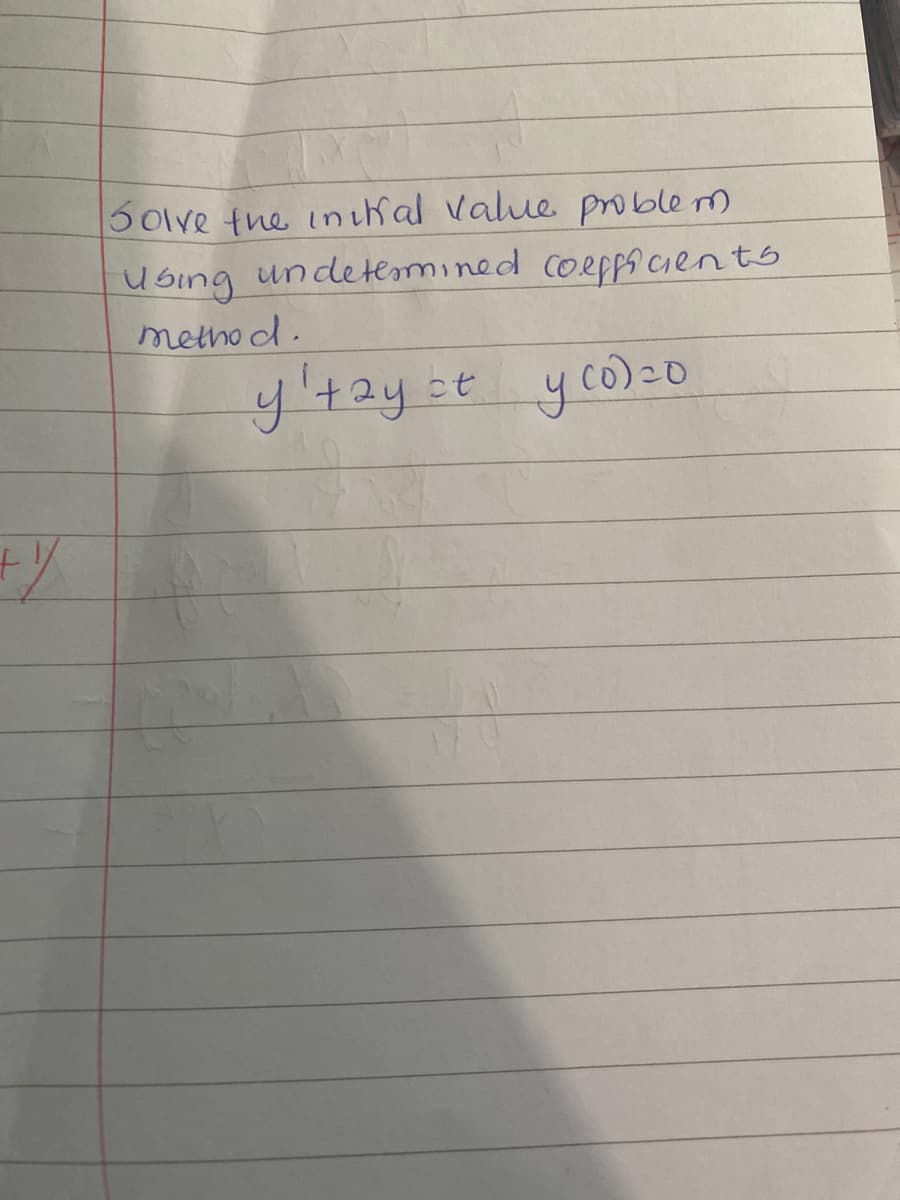 Solve the initial value problem
using undetermined coefficients
method.
y'+2y=t y(0)=0